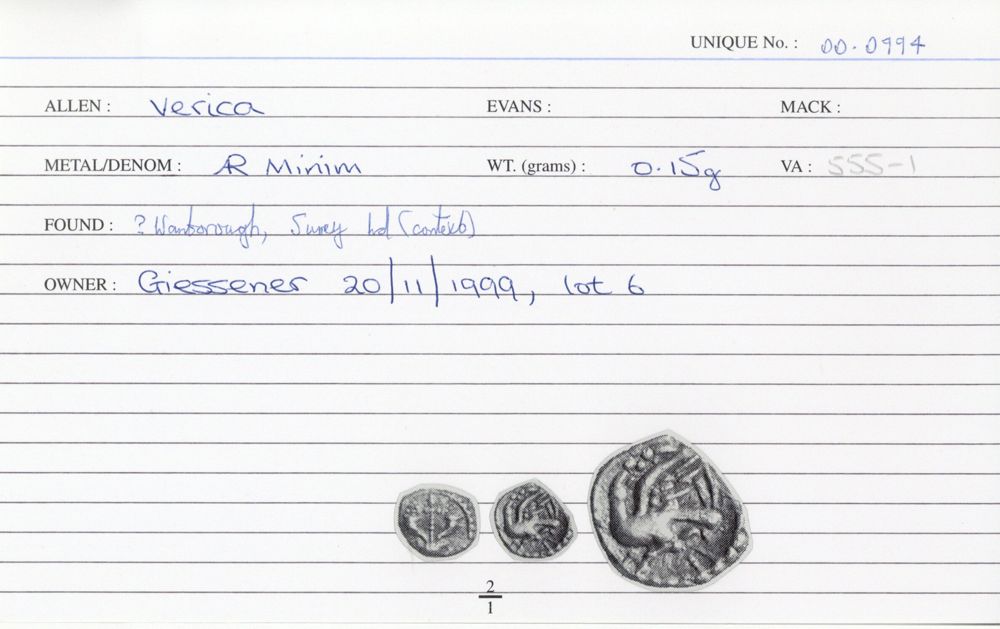 UNIQUE No. : 00.0994
ALLEN : Verica EVANS : MACK :
METAL/DENOM : AR Minim WT. (grams) : 0.15g VA : 555-1
FOUND : ? Wanborough, Surrey hd (contexts)
OWNER : Giessener 20/11/1999, lot 6
2
1